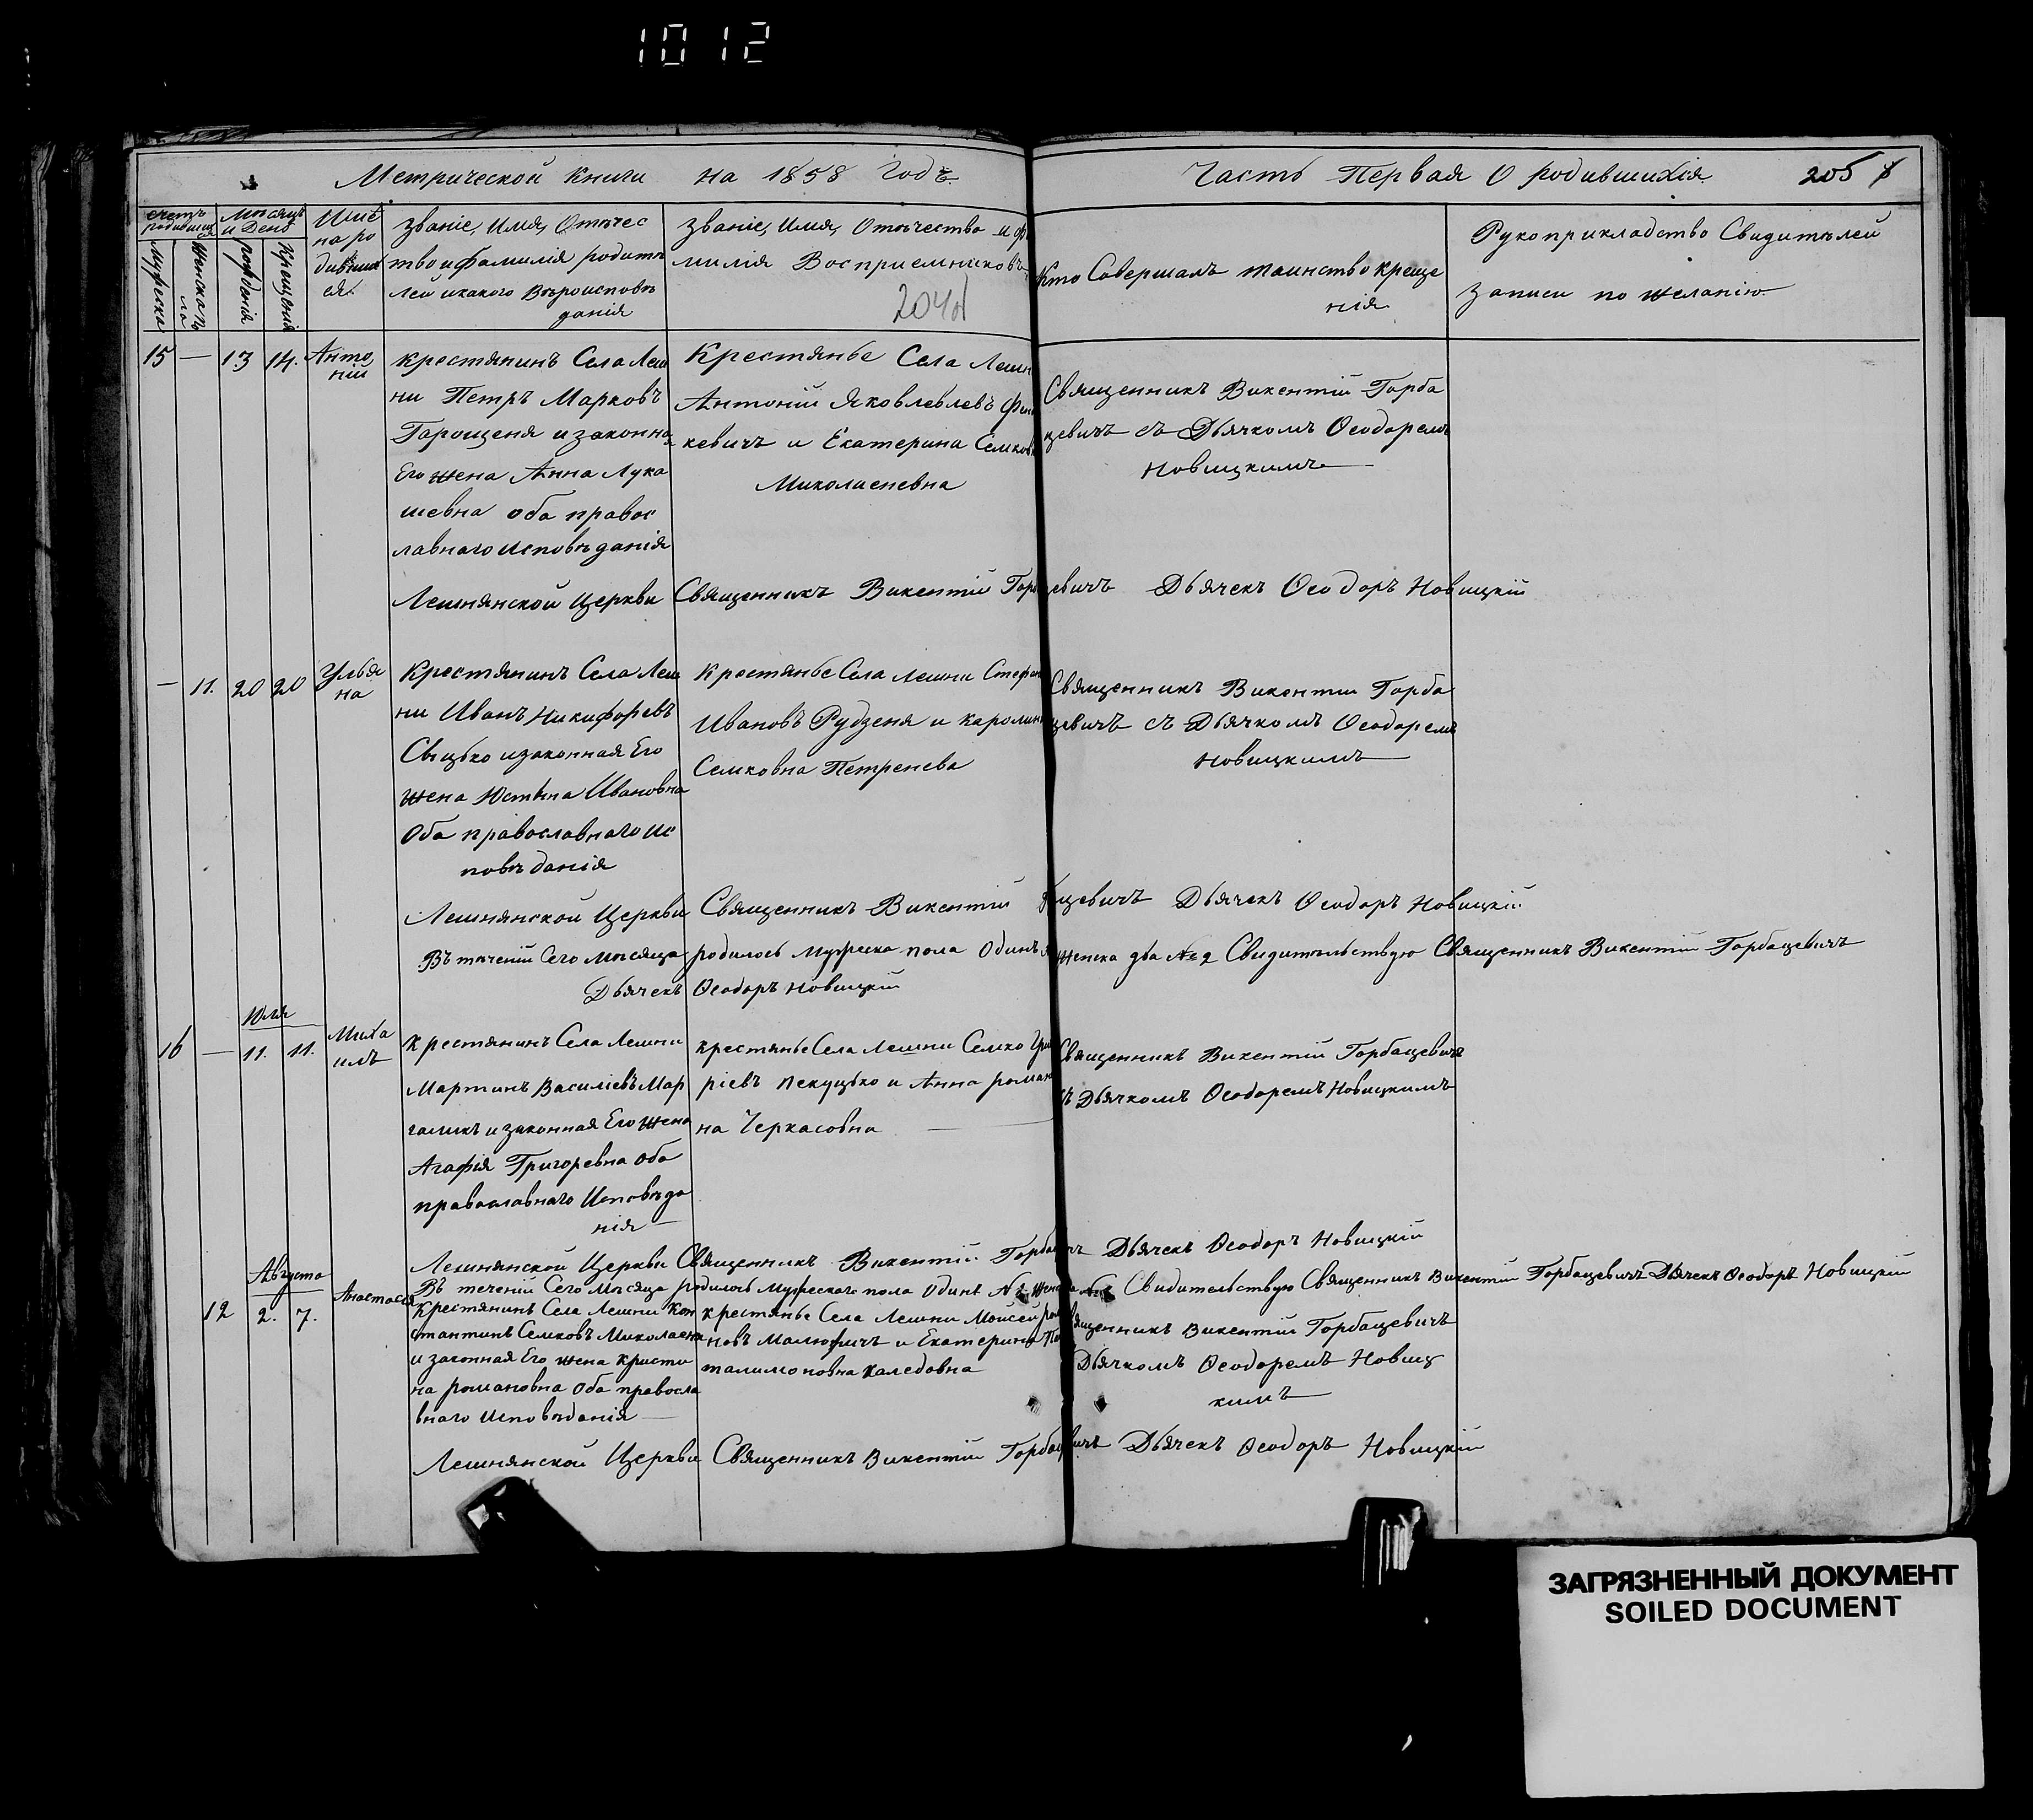 1012
Метрической Книги на 1858 Годъ.
Часть Первая О родившихся
205
счетъ родившихся
мѣсяцъ и День
Име на ро дивших ся.
Званіе, Имя, Отечес
тво и фамилія родите
лей и какого Вѣроисповѣ
данія
Званіе, Имя, Отечество и фа
милія Восприемниковъ
204
Кто Совершалъ таинство креще
нія
Рукоприкладство Свидителей
записи по желанію
мужеска
женска
рожденія
Крещенія
15 — 13 14. Анто
ній
крестянинъ Села Леш
ни Петръ Марковъ
Гарощеня и законная
Его жена Анна Лука
шевна оба правос
лавнаго исповѣданія
Крестянье Села Лешн
Антоній Яковлевлевъ
кевичъ и Екатерина Семков
Миколаеневна
Священникъ Викентій Горба
цевичъ съ Дьячкомъ Ѳеодоремъ
Новицкимъ
Лешнянской Церкви Священникъ Викентій Гор цевичъ Дьячекъ Ѳеодоръ Новицкій
— 11. 20 20 Улья
на
Крестянинъ Села Леш
ни Иванъ Никифоревъ
Свыцько и законная Его
жена Юстына Ивановна
Оба православнаго ис
повѣданія
Крестянье Села Лешни Стефан
Ивановъ Рудзеня и Каролин
Семковна Петренева
Священникъ Викентій Горба
цевичъ съ Дьячкомъ Ѳеодоремъ
Новицкимъ
Лешнянской Церкви Священникъ Викентій цевичъ Дьячекъ Ѳеодоръ Новицкій
Въ теченіи Сего Мѣсяца родилось мужеска пола Одинъ женска два № 2 Свидительствую Священникъ Викентій Горбацевичъ
Дьячекъ Ѳеодоръ Новицкій
Юля
16 — 11. 11. Миха
илъ
Крестянинъ Села Лешни
Мартинъ Василіевъ Мар
галикъ и законная Его жена
Агафія Григоревна оба
православнаго Исповѣда
нія
крестянье Села Лешни Семко Григ
ріевъ Пекуцько и Анна роман
на Черкасовна
Священникъ Викентій Горбацевичъ
съ Дьячкомъ Ѳеодоремъ Новицкимъ
Лешнянской Церкви Священникъ Викентій Горба Дьячекъ Ѳеодоръ Новицкій
Въ теченіи Сего Мѣсяца родилось мужескаго пола Одинъ Свидительствую Священникъ Викентій Горбацевичъ Дьячекъ Ѳеодоръ Новицкій
Августа
12 2. 7. Анастасія
Крестянинъ Села Лешни Кон
стантинъ Семковъ Миколаеня
и законная Его жена Кристи
на романовна Оба правосла
внаго Исповѣданія
крестянье Села Лешни Моисей ром
новъ Малюжичъ и Екатерина Пан
талимоновна Каледовна
Священникъ Викентій Горбацевичъ
Дьячкомъ Ѳеодоремъ Новиц
кимъ
Лешнянской Церкви Священникъ Викентій Горба вичъ Дьячекъ Ѳеодоръ Новицкій
ЗАГРЯЗНЕННЫЙ ДОКУМЕНТ
SOILED DOCUMENT